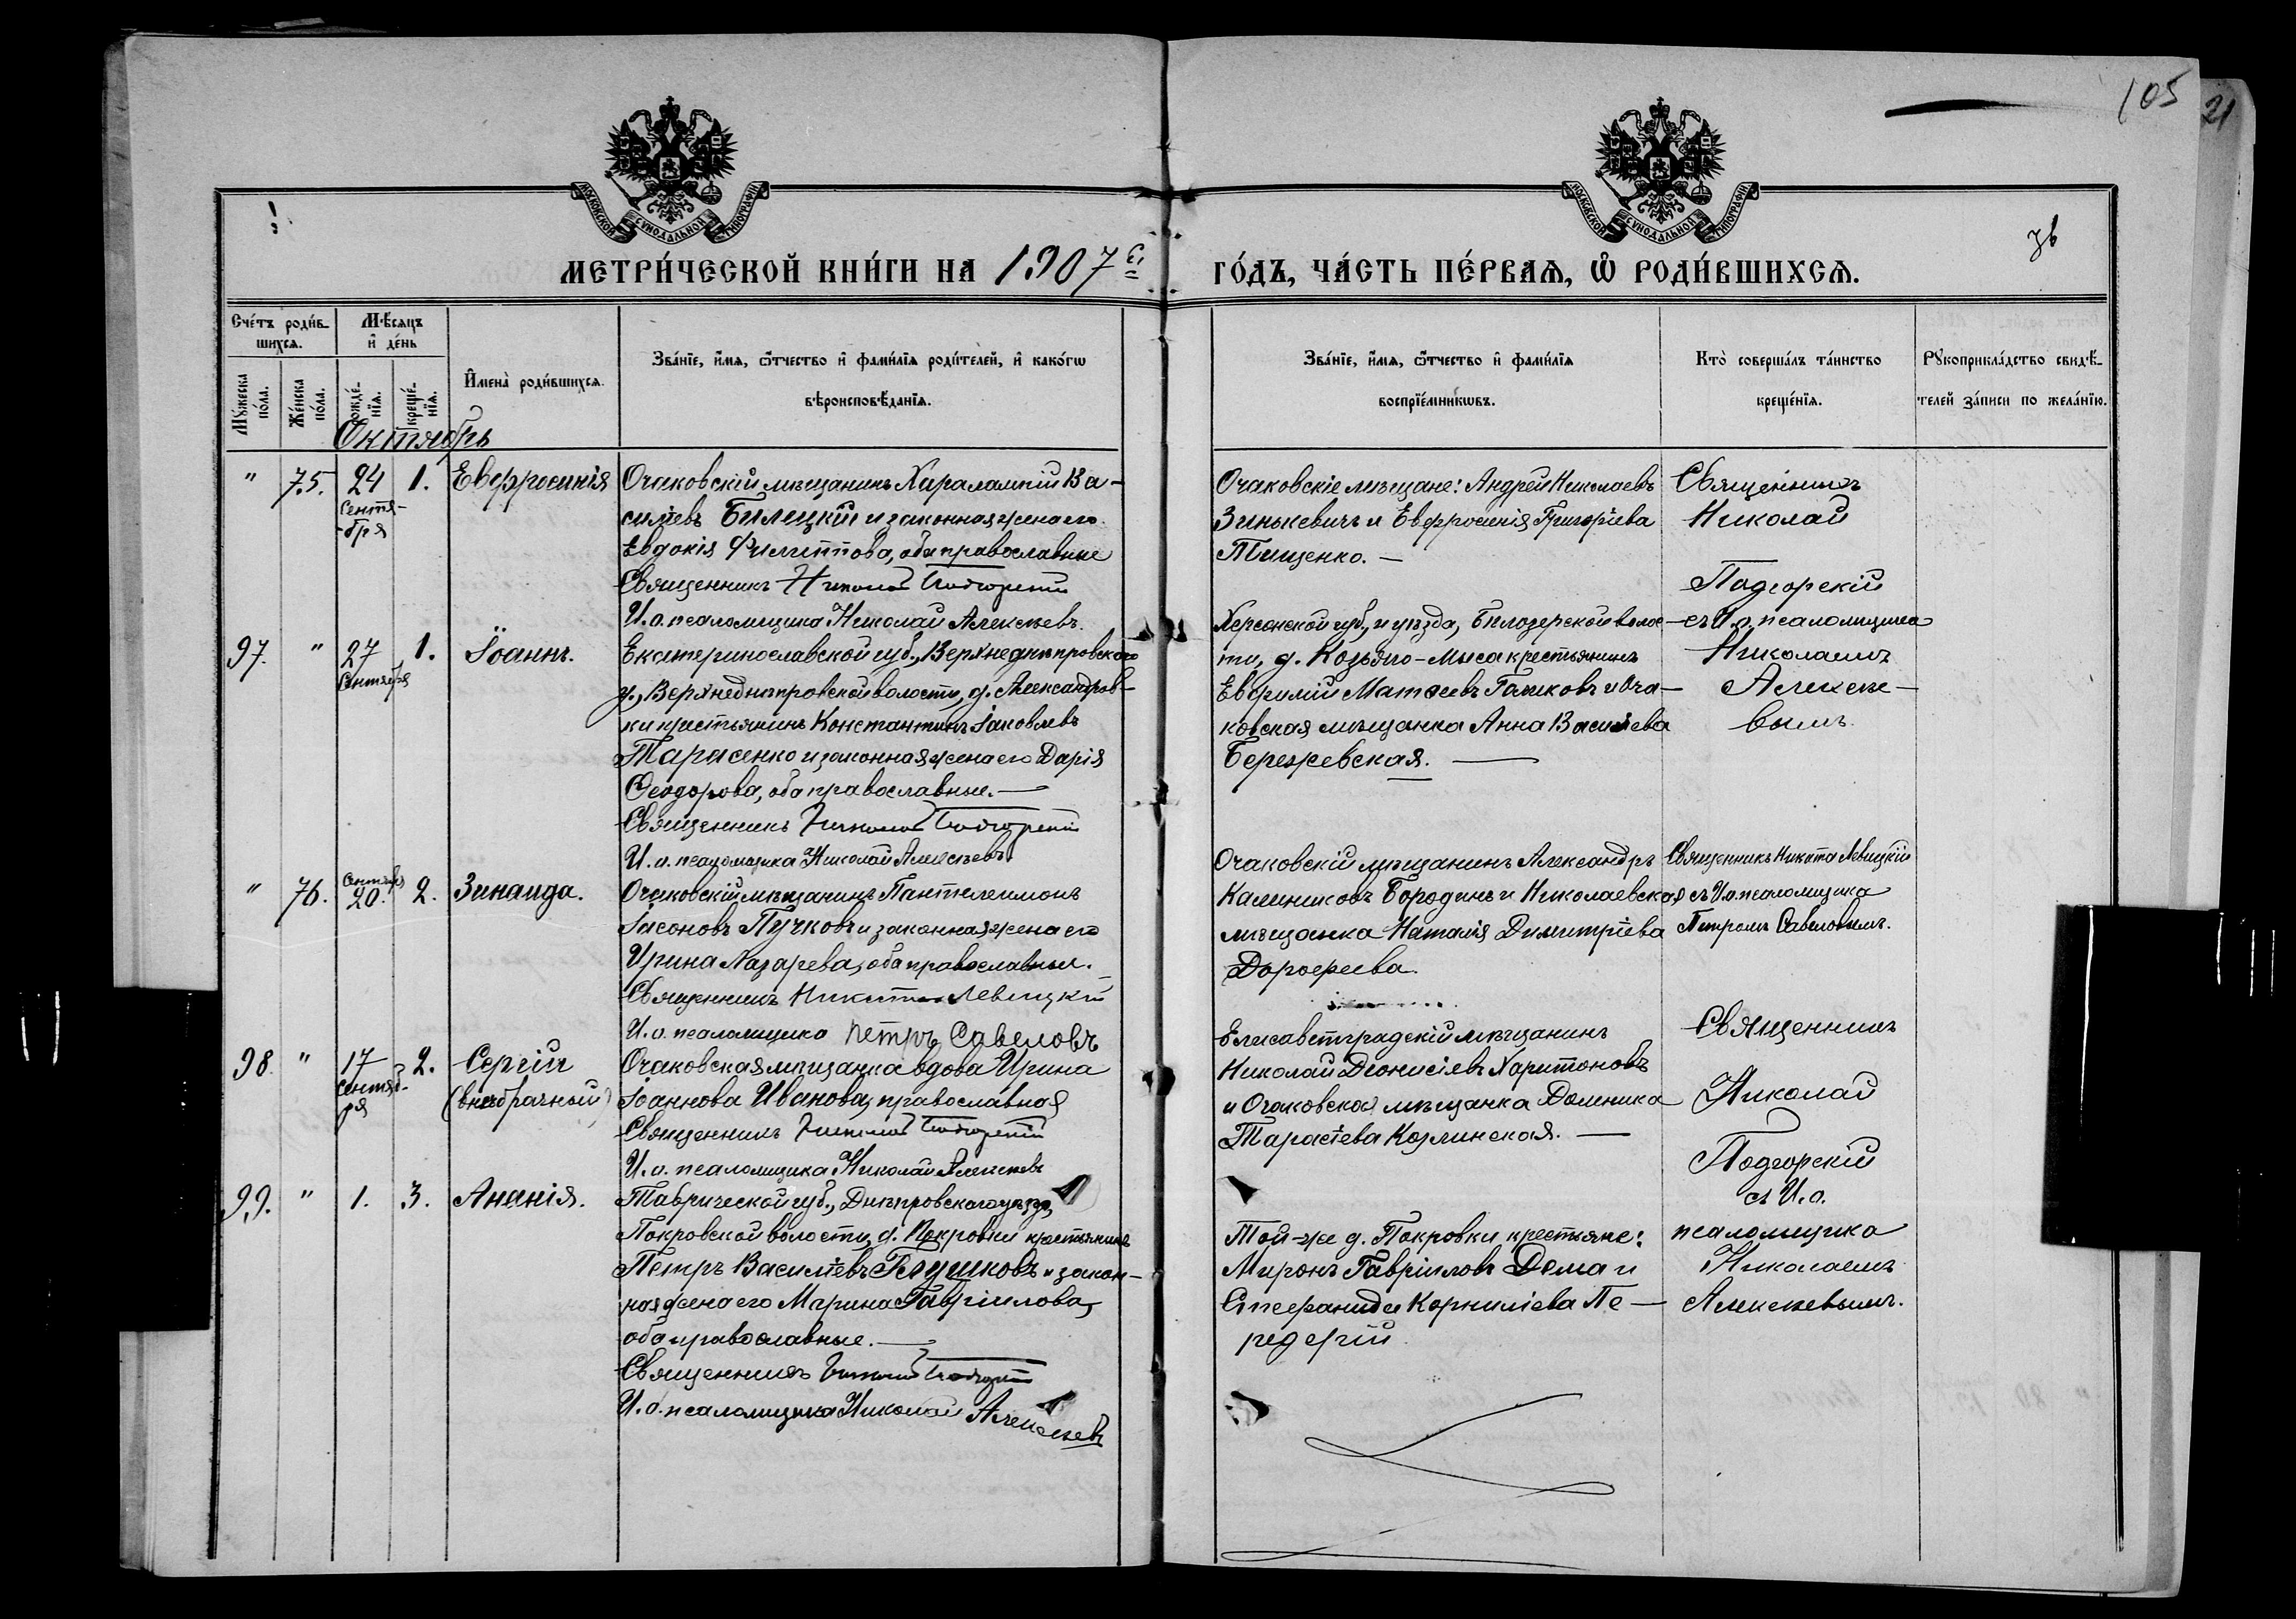 105
21
!
зв
МОСКОВСКОЙ СѴНОДАЛЬНОЙ ТИПОГРАФІИ
МОСКОВСКОЙ СѴНОДАЛЬНОЙ ТИПОГРАФІИ
МЕТРИ́ЧЕСКОЙ КНИ́ГИ НА 1907й
ГО́ДЪ, ЧА́СТЬ ПЕ́РВАЯ, Ѽ РОДИ́ВШИХСЯ.
Сче́тъ роди́в-
шихся.
Мужеска по́ла.
Же́нска по́ла.
Мѣ́сяцъ
и де́нь
рожде́-нїя.
креще́-нїя.
Имена̀ роди́вшихся.
Зва́нїе, и́мя, ѻ́тчество и фами́лїя роди́телей, и како́гѡ
вѣроисповѣ́данїя.
Зва́нїе, и́мя, ѻ́тчество и фами́лїя
воспрїе́мникѡвъ.
Кто̀ соверша́лъ та́инство
креще́нїя.
Рꙋкоприкла́дство свидѣ́-
телей за́писи по жела́нїю.
Октябрь
" 75. 24 Сентя-бря 1. Евфросинія
Очаковскій мѣщанинъ Харалампій Ва-
сильевъ Билецкій и законная жена его
Евдокія Филиппова, оба православные
Священникъ Николай Подгорскій
И. о. псаломщика Николай Алексѣевъ.
Очаковскіе мѣщане: Андрей Николаевъ
Зинькевичъ и Евфросинія Григоріева
Тищенко. —
Священникъ
Николай
Подгорскій
съ И. о. псаломщика
Николаемъ
Алексѣе-
вымъ.
97. " 27 Сентября 1. Іоаннъ.
Екатеринославской губ., Верхнеднѣпровскаго
у., Верхнеднѣпровской волости, д. Александров-
ки крестьянинъ Константинъ Іаковлевъ
Тарасенко и законная жена его Дарія
Ѳеодорова, оба православные. —
Священникъ Николай Подгорскій
И. о. псаломщика Николай Алексѣевъ
Херсонской губ., и уѣзда, Бѣлозерской волос-
ти, д. Козьяго-Мыса крестьянинъ
Евфимій Матѳеевъ Галиковъ и Оча-
ковская мѣщанка Анна Васильева
Бережевская. —
" 76. Сентября 20. 2. Зинаида.
Очаковскій мѣщанинъ Пантелеимонъ
Іасоновъ Пучковъ и законная жена его
Ирина Лазарева, оба православные.
Священникъ Никита Левицкій
И. о. псаломщика Петръ Савеловъ
Очаковскій мѣщанинъ Александръ
Калиниковъ Бородинъ и Николаевская
мѣщанка Наталія Димитріева
Дороѳеева.
Священникъ Никита Левицкій
съ И.о. псаломщика
Петромъ Савеловымъ.
98. " 17 Сентяб-ря 2. Сергій
(внѣбрачный)
Очаковская мѣщанка вдова Ирина
Іоаннова Иванова, православная
Священникъ Николай Подгорскій
И. о. псаломщика Николай Алексѣевъ
Елисаветградскій мѣщанинъ
Николай Діонисіевъ Харитоновъ
и Очаковская мѣщанка Домника
Тарасіева Козлинская. —
Священникъ
Николай
Подгорскій
съ И. о.
псаломщика
Николаемъ
Алексѣевымъ.
99. " 1. 3. Ананія.
Таврической губ., Днѣпровскаго уѣзда,
Покровской волости, д. Покровки крестьянинъ
Петръ Васильевъ Глушковъ и закон-
ная жена его Марина Гавріилова,
оба православные. —
Священникъ Николай Подгорскій
И. о. псаломщика Николай Алексѣевъ
Той-же д. Покровки крестьяне:
Миронъ Гавріиловъ Дема и
Стефанида Корниліева Пе-
редерій